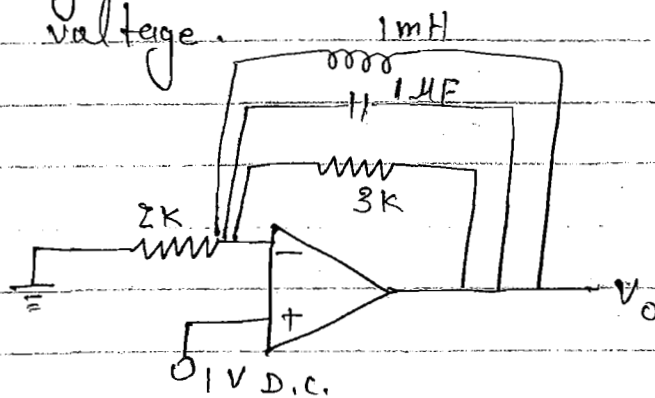 valtage.
1mH
1µF
3K
2K
−
+
Vo
1 V D.C.